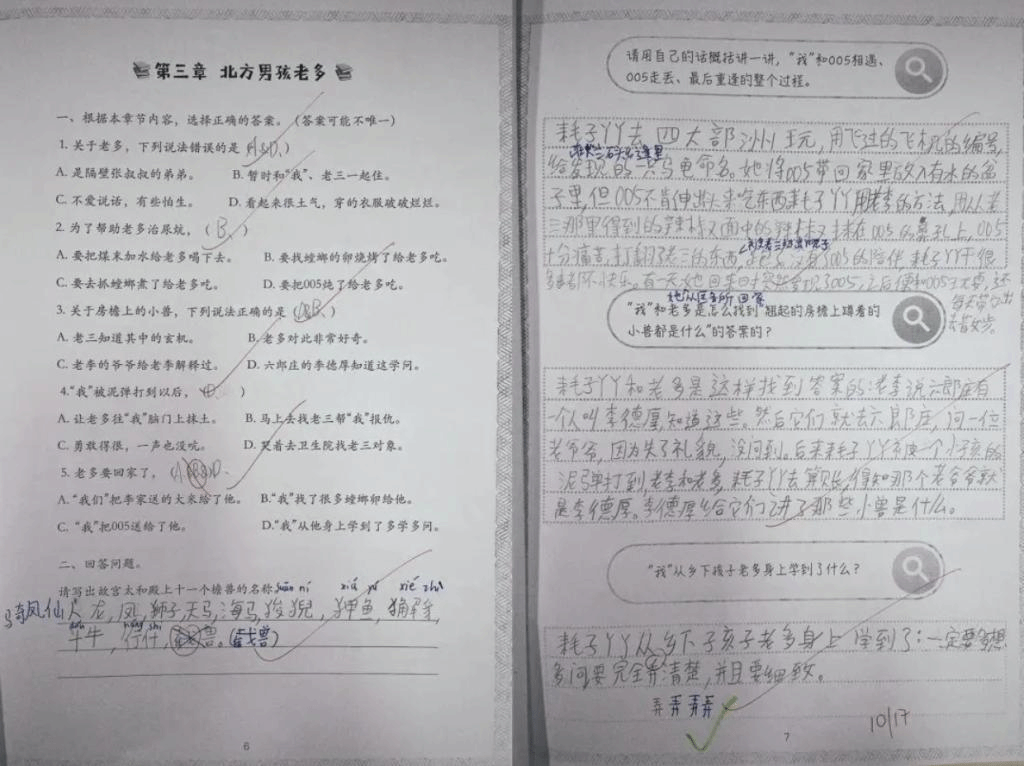 第三章 北方男孩老多
一、根据本章节内容,选择正确的答案。(答案可能不唯一)
1.关于老多,下列说法错误的是(A、D、)
A.是隔壁张叔叔的弟弟。 B.暂时和“我”、老三一起住。
C.不爱说话,有些怕生。 D.看起来很土气,穿的衣服破破烂烂。
2.为了帮助老多治尿炕,(B、)
A.要把煤末加水给老多喝下去。 B.要找螳螂的卵烧烤了给老多吃。
C.要去抓螳螂煮了给老多吃。 D.要把005炖了给老多吃。
3.关于房檐上的小兽,下列说法正确的是( B、)
A.老三知道其中的玄机。 B.老多对此非常好奇。
C.老李的爷爷给老李解释过。 D.六郎庄的李德厚知道这学问。
4.“我”被泥弹打到以后,( )
A.让老多往“我”脑门上抹土。 B.马上去找老三帮“我”报仇。
C.勇敢得很,一声也没吭。 D.笑着去卫生院找老三对象。
5.老多要回家了,( )D、
A.“我们”把李家送的大米给了他。 B.“我”找了很多螳螂卵给他。
C.“我”把005送给了他。 D.“我”从他身上学到了多学多问。
二、回答问题。
请写出故宫太和殿上十一个檐兽的名称 suān ní xiá yú xiè zhì
骑凤仙人 龙,凤,狮子,天马,海马,狻猊,狎鱼,獬豸,
斗牛,行什, 兽。
6
请用自己的话概括讲一讲,“我”和005相遇、
005走丢、最后重逢的整个过程。
耗子丫丫去四大部洲玩,用飞过的飞机的编号
给发现的一只乌龟命名。她将005带回家里放入有水的盆
子里,但005不肯伸出头来吃东西耗子丫丫用老李的方法,用从老
三那里得到的辣椒面中的辣椒抹在005的鼻孔上,005
十分痛苦,打翻了老三的东西, 没有005的陪伴耗子丫丫很
多天都不快乐。有一天她回来时突然发现了005,之后便和005 还
她从医务所回家
每天带 出
去散步。
“我”和老多是怎么找到“翘起的房檐上蹲着的
小兽都是什么”的答案的?
耗子丫丫和老多是这样找到答案的:老李说六郎庄有
一个人叫李德厚,知道这些。然后它们就去六郎庄,问一位
老爷爷,因为失了礼貌,没问到。后来耗子丫丫 被一个小孩的
泥弹打到 老李和老多,耗子丫丫去算账,得知那个老爷爷就
是李德厚。李德厚给它们讲了那些小兽是什么。
“我”从乡下孩子老多身上学到了什么?
耗子丫丫从乡下子孩子老多身上学到了:一定要多想
多问要完全弄清楚,并且要细致。
弄 弄 弄 弄
10/17
7